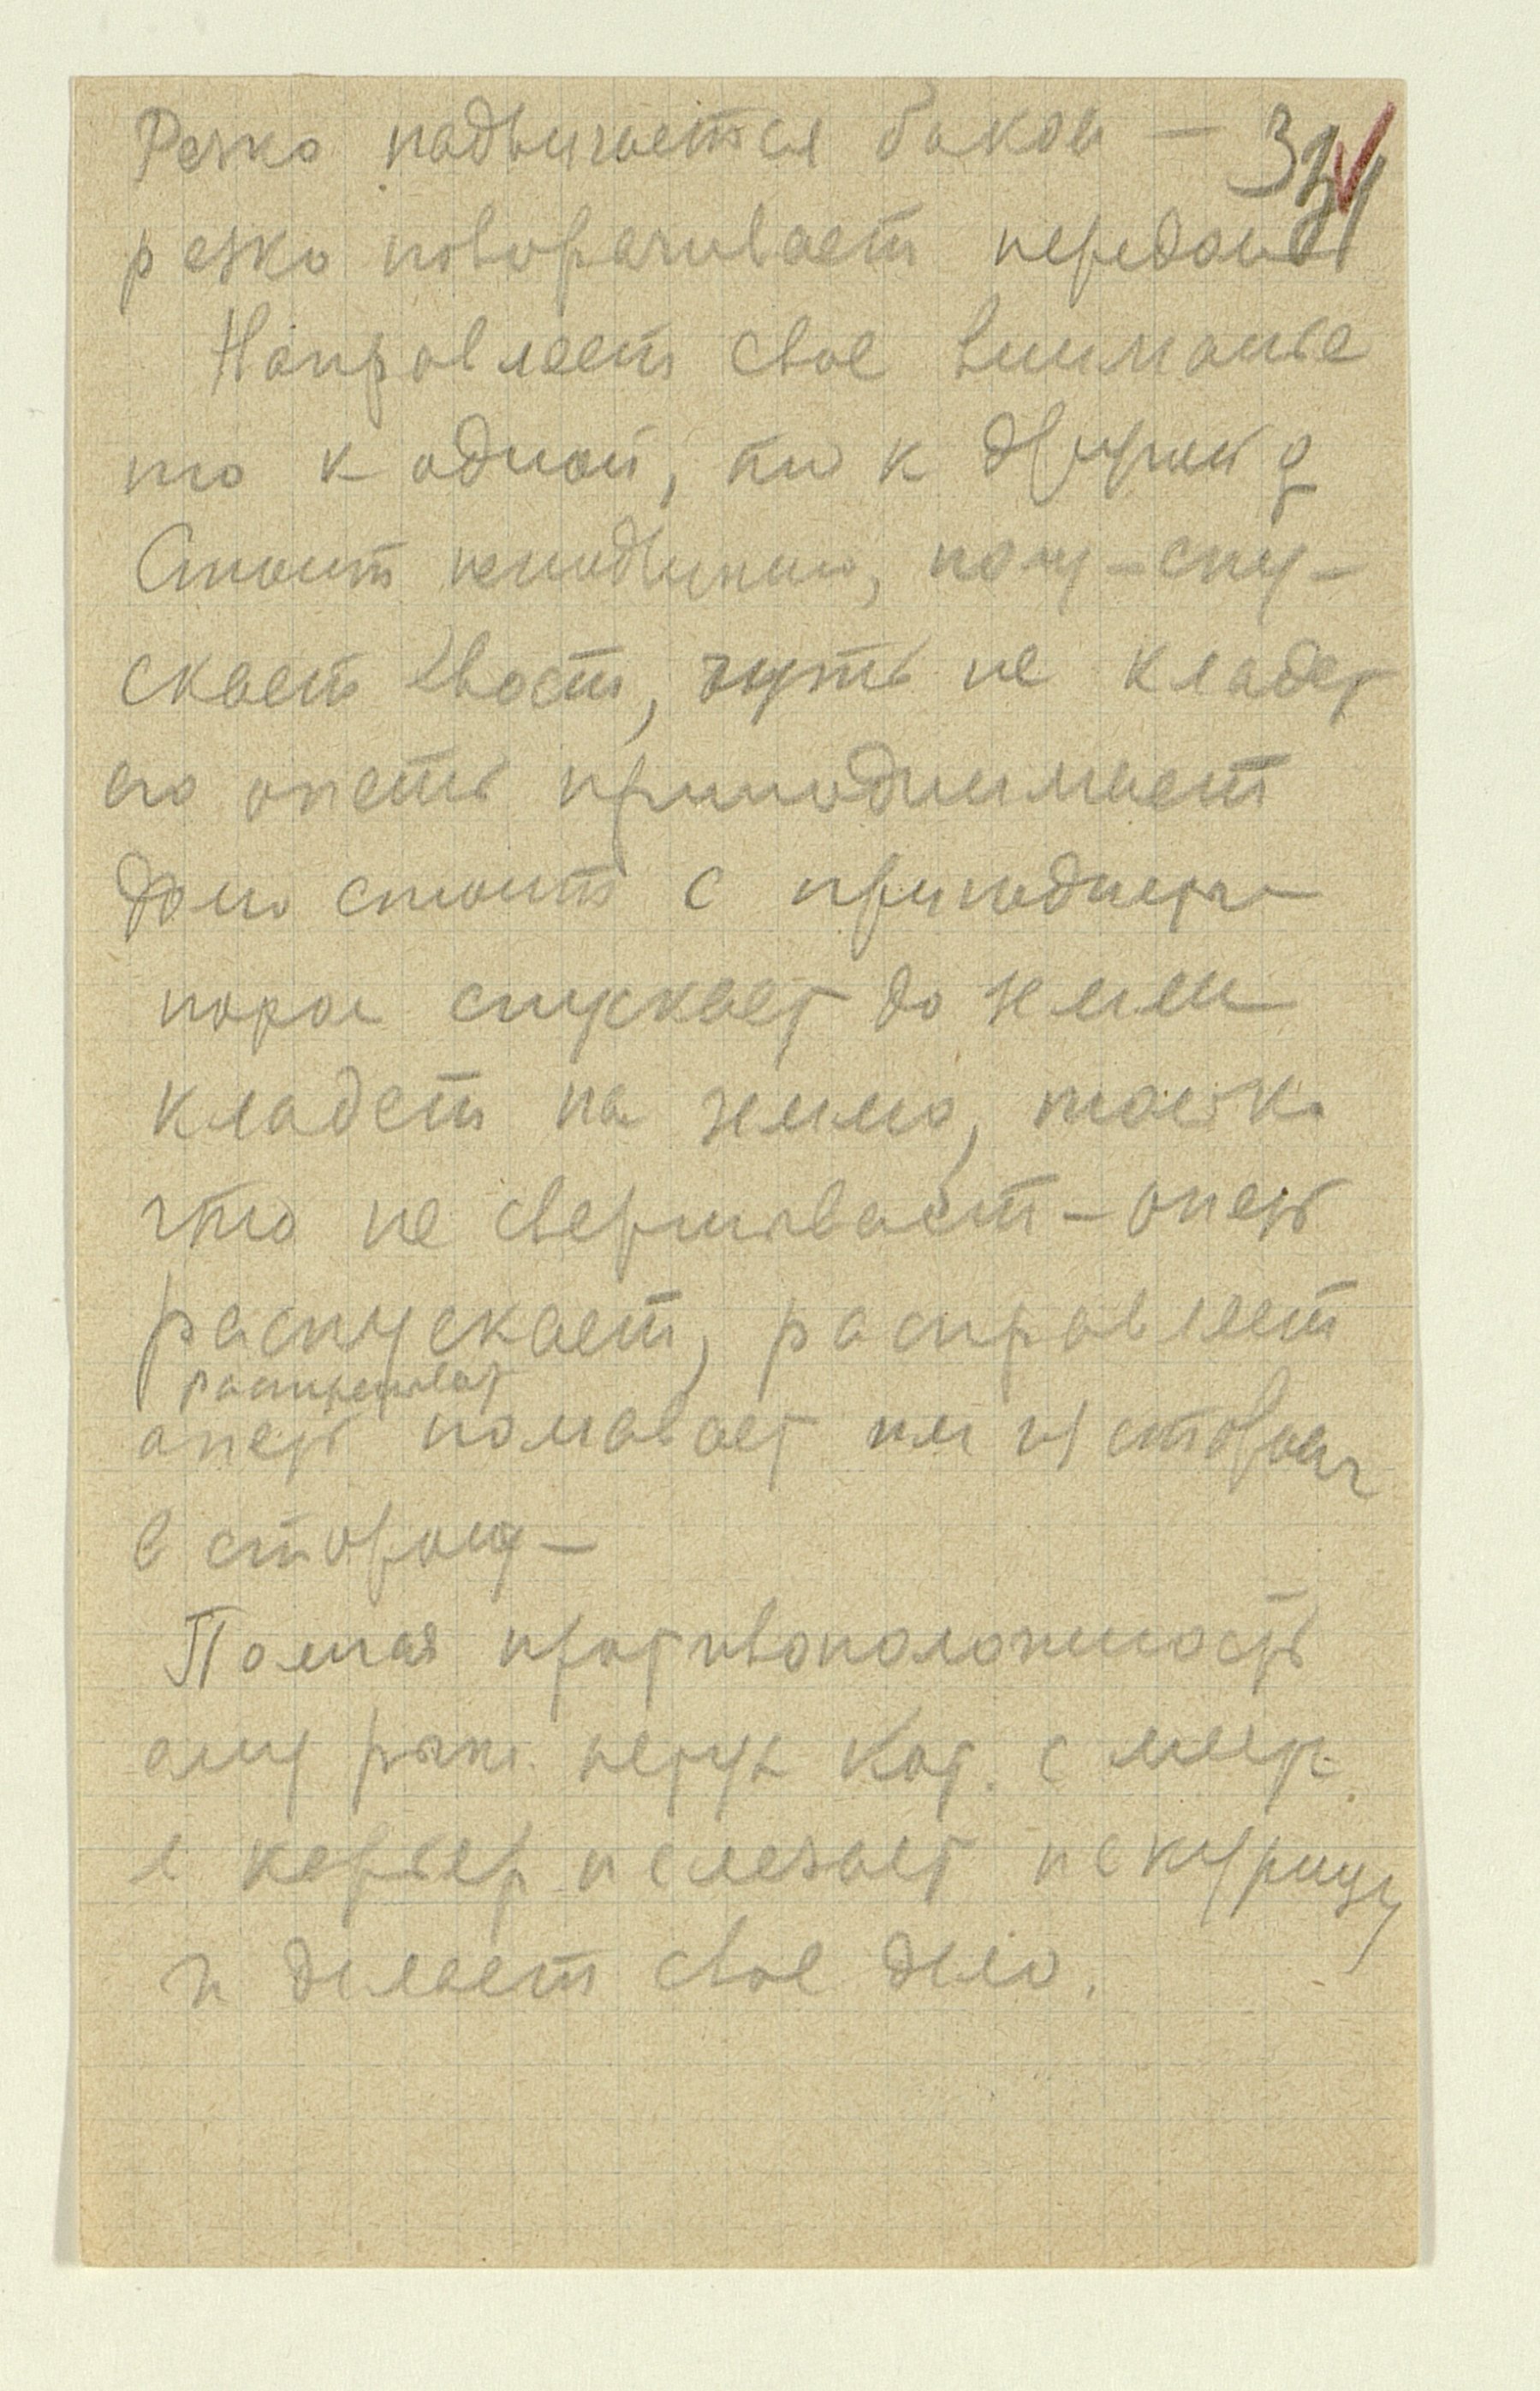 Резко надвигается боком —
резко поворачивает передом
Направляет свое вниманье
то к одной, то к другой
Стоит неподвижно, полу-спу-
скает хвост, чуть не кладет
его опеть приподнимает
долго стоит с приподнет
порой спускает до земли
кладет на землю, только
что не свертывает — опеть
распускает, расправляет
опеть помавает им из стороны
в сторону —
Полная противоположность
ему петух кот. с
карьер нелезает не курицу
и делает свое дело.